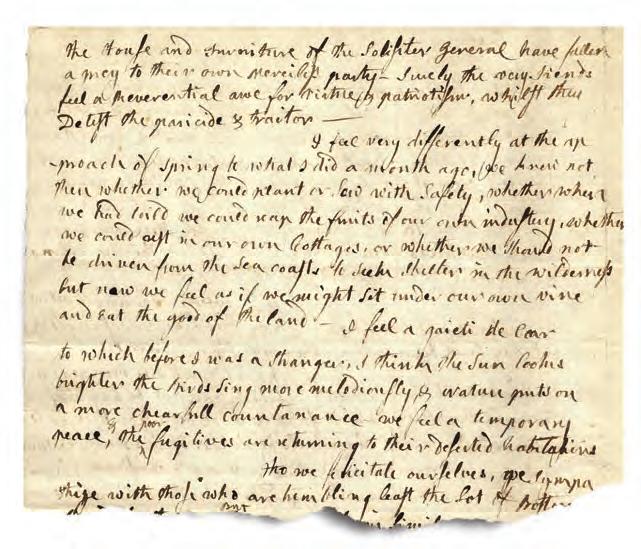 the House and Furniture of the Solisiter General have fallen
a prey to their own merciless party— Surely the very Fiends
feel a Reverential awe for virtue & patriotism, whilst they
Detest the paricide & traitor —
I feel very differently at the ap
proach of spring to what I did a month ago, we knew not
then whether we could plant or sow with safety, whether when
we had toild we could reap the fruits of our own industery, whether
we could rest in our own Cottages, or whether we should not
be driven from the sea coasts to seek shelter in the wilderness
but now we feel as if we might sit under our own vine
and eat the good of the land — I feel a gaieti de Coar
to which before I was a stranger, I think the Sun looks
brighter the Birds sing more melodiously, & nature puts on
a more chearfull countanance we feel a temporary
peace, & the poor fugitives are returning to their deserted habitations
Tho we felicitate ourselves, we sympa
thize with those who are trembling least the Lot of Boston